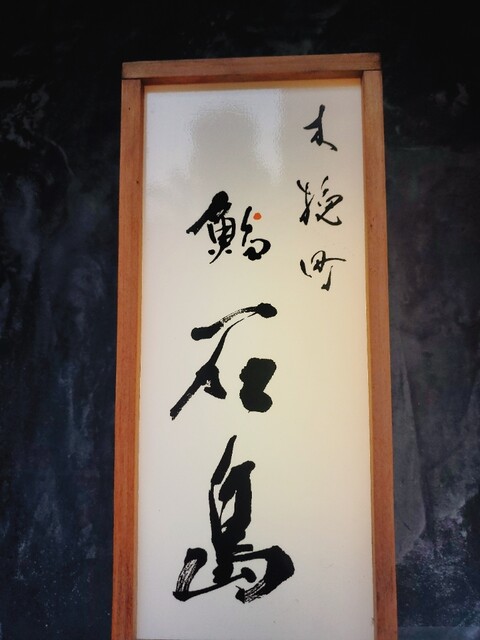 木挽町
鮨 石島